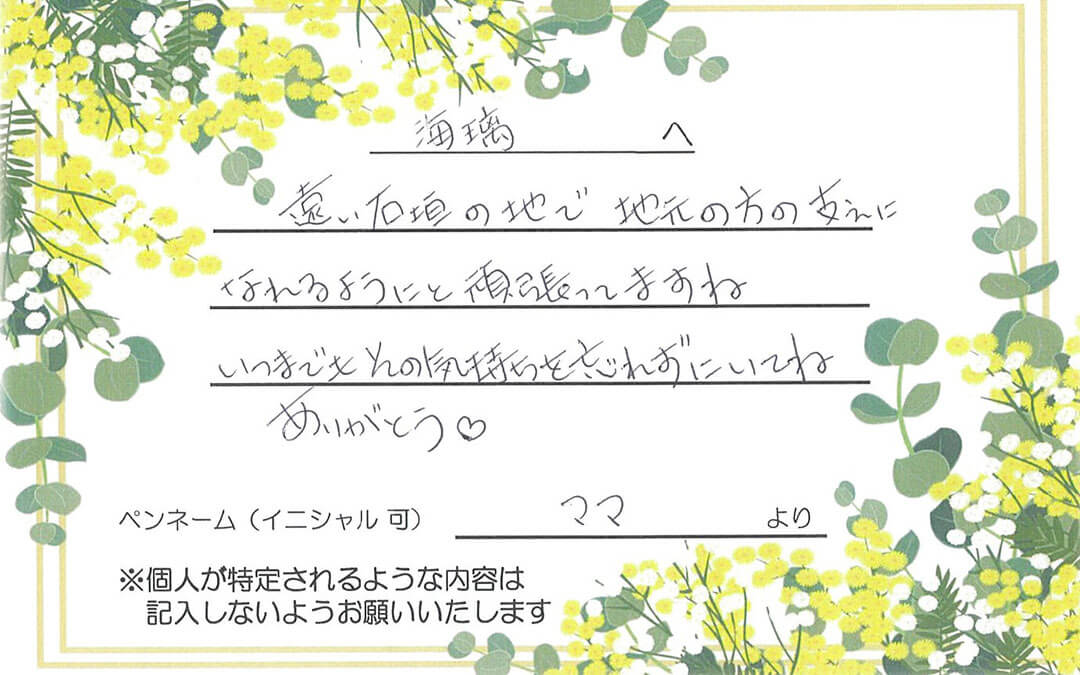 海璃 へ
遠い石垣の地で 地元の方の支えに
なれるようにと頑張ってますね
いつまでもその気持ちを忘れずにいてね
ありがとう♡
ペンネーム（イニシャル 可） ママ より
※個人が特定されるような内容は
記入しないようお願いいたします